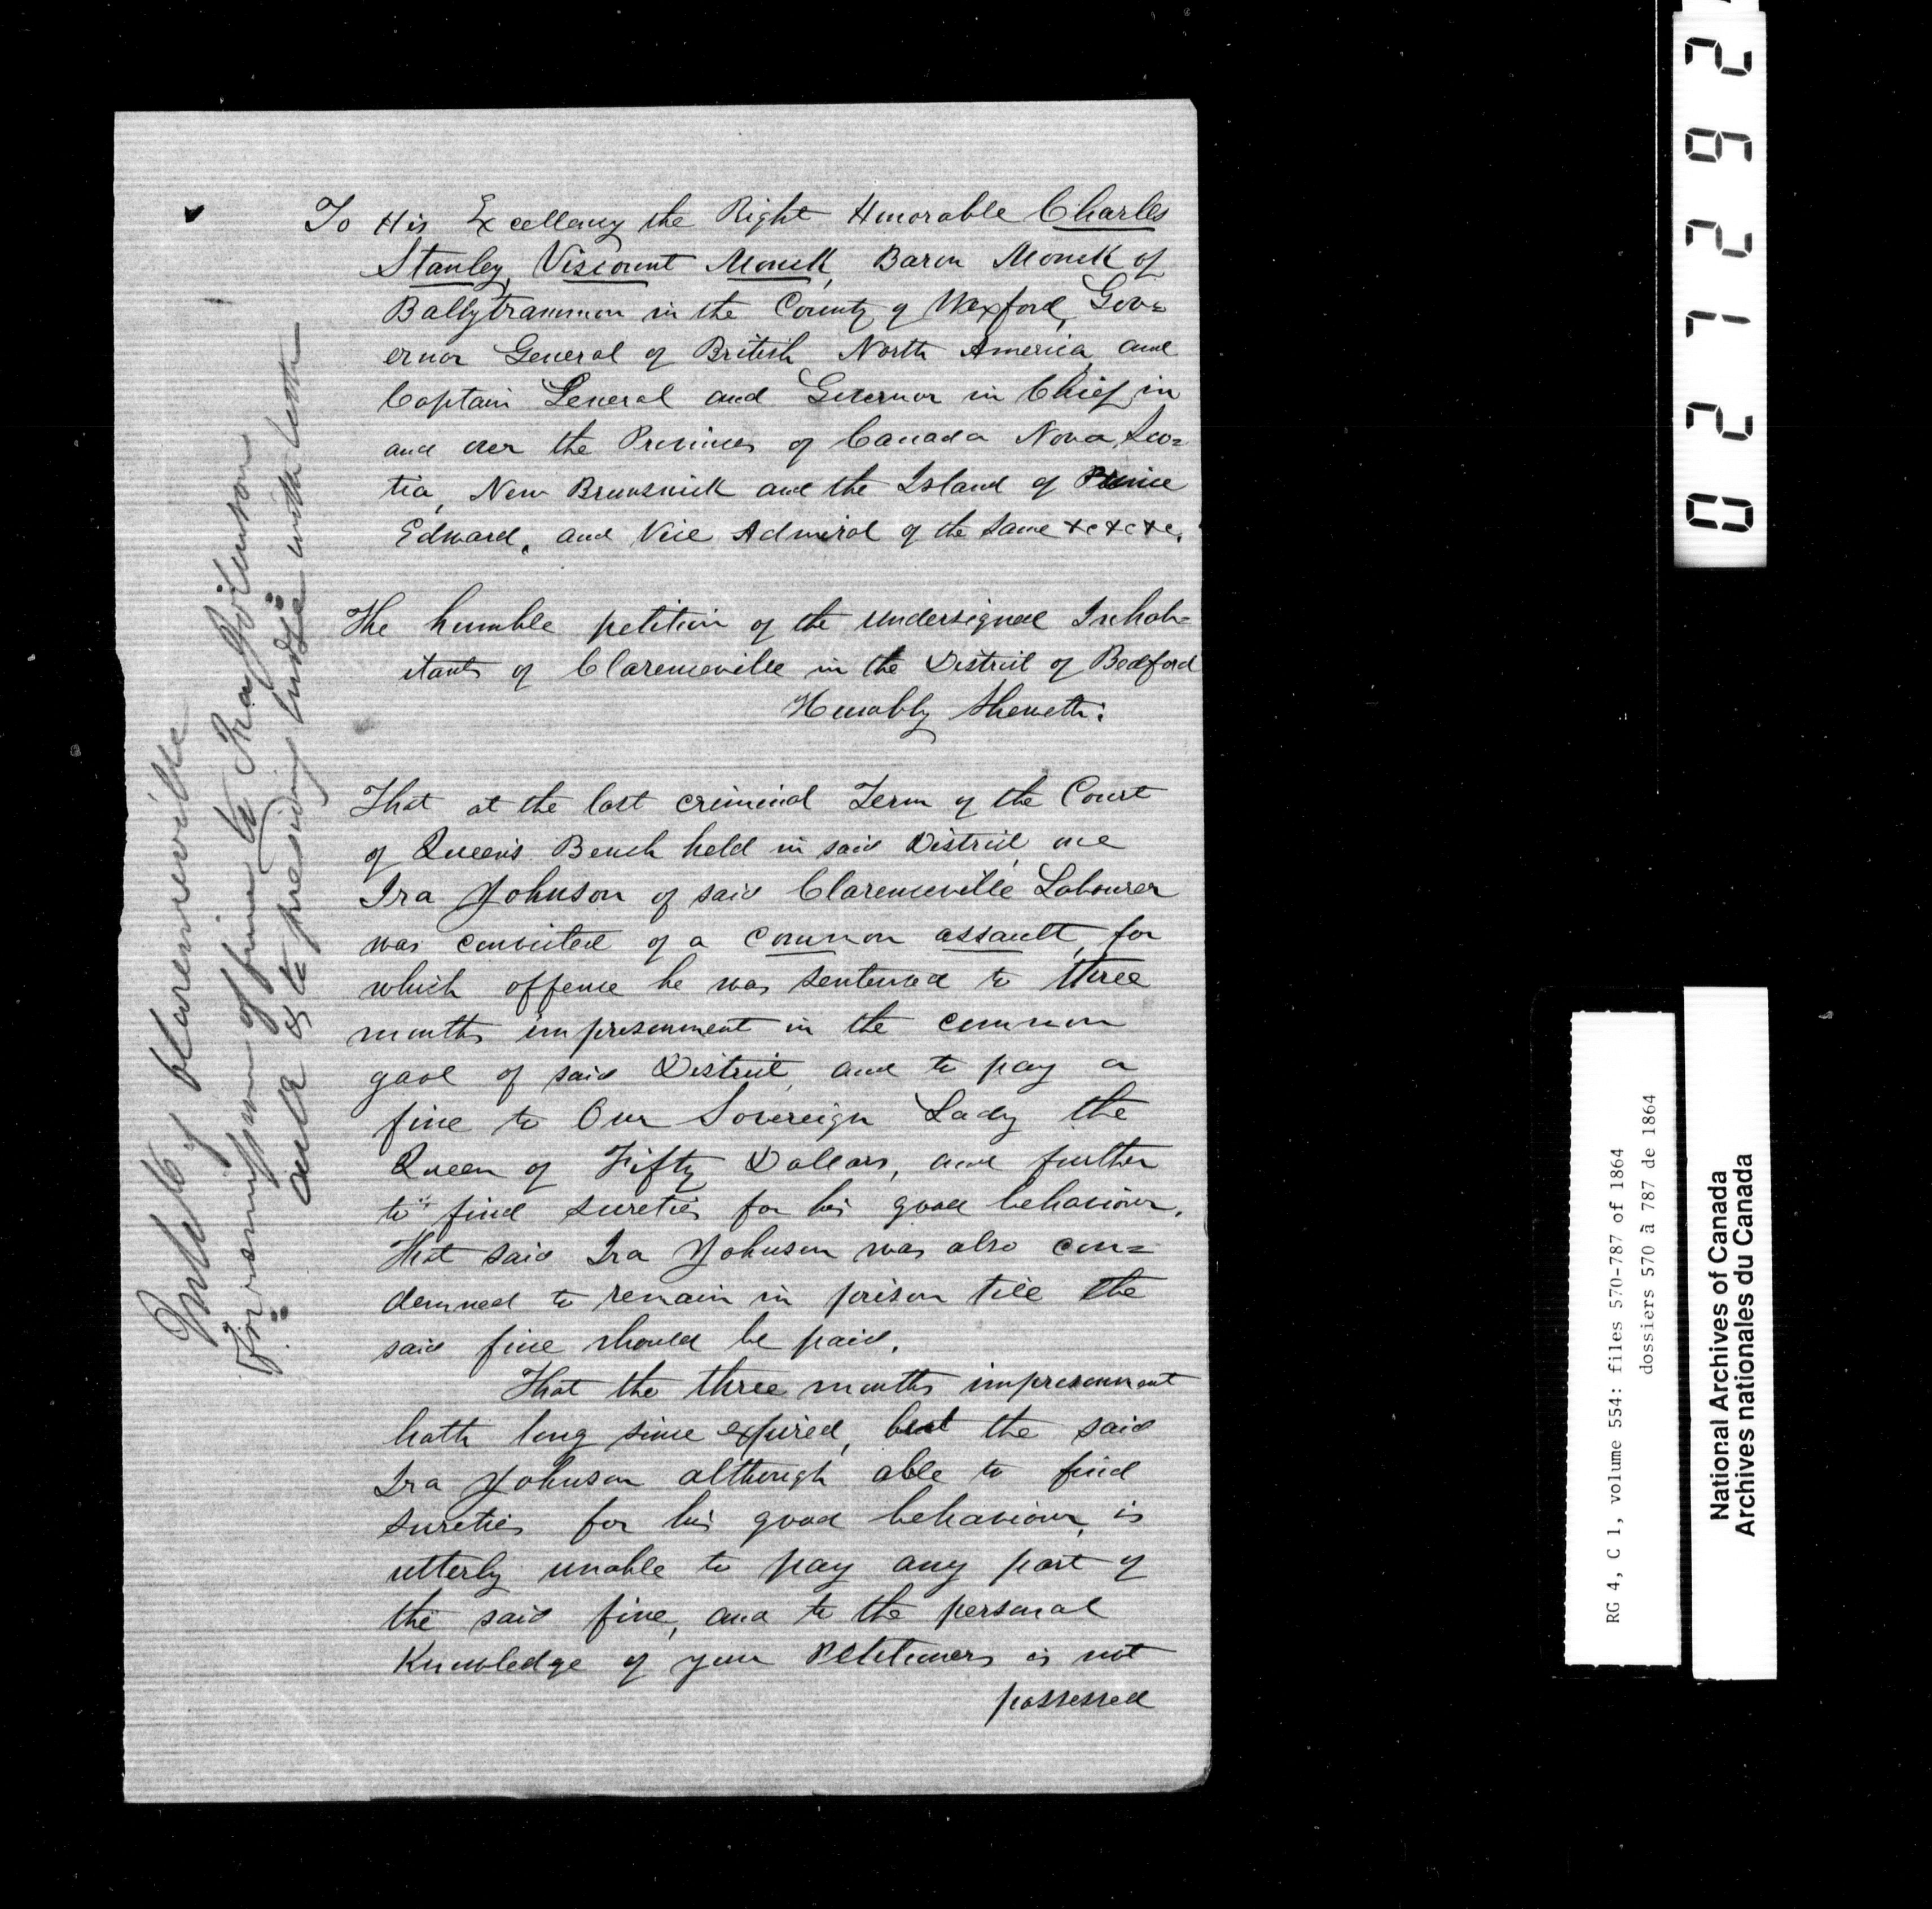 To His Excellency the Right Honorable Charles
Stanley, Viscount Monck, Baron Monck of
Ballytrammon in the County of Wexford, Gov=
ernor General of British North America, and
Captain General and Governor in Chief, in
and over the Provinces of Canada Nova Sco=
tia, New Brunswick and the Island of Prince
Edward, and Vice Admiral of the same &c &c &c.
The humble petition of the undersigned Inhab=
itants of Clarenceville in the District of Bedford
Humbly Sheweth:
That at the last criminal Term of the Court
of Queen's Bench held in said District, one
Ira Johnson of said Clarenceville Labourer
was convicted of a common assault, for
which offence he was sentenced to three
months imprisonment in the common
gaol of said District, and to pay a
fine to Our Sovereign Lady the
Queen of Fifty Dollars, and further
to find sureties for his good behaviour.
That said Ira Johnson was also con=
demned to remain in prison till the
said fine should be paid.
That the three months imprisonment
hath long since expired, but the said
Ira Johnson although able to find
sureties for his good behaviour, is
utterly unable to pay any part of
the said fine, and to the personal
Knowledge of your Petitioners is not
possessed
Inhabts of Clarenceville
For remission of fine to Ira Johnson
& to presiding Judge with letter
027292
RG 4, C 1, volume 554: files 570-787 of 1864
dossiers 570 à 787 de 1864
National Archives of Canada
Archives nationales du Canada